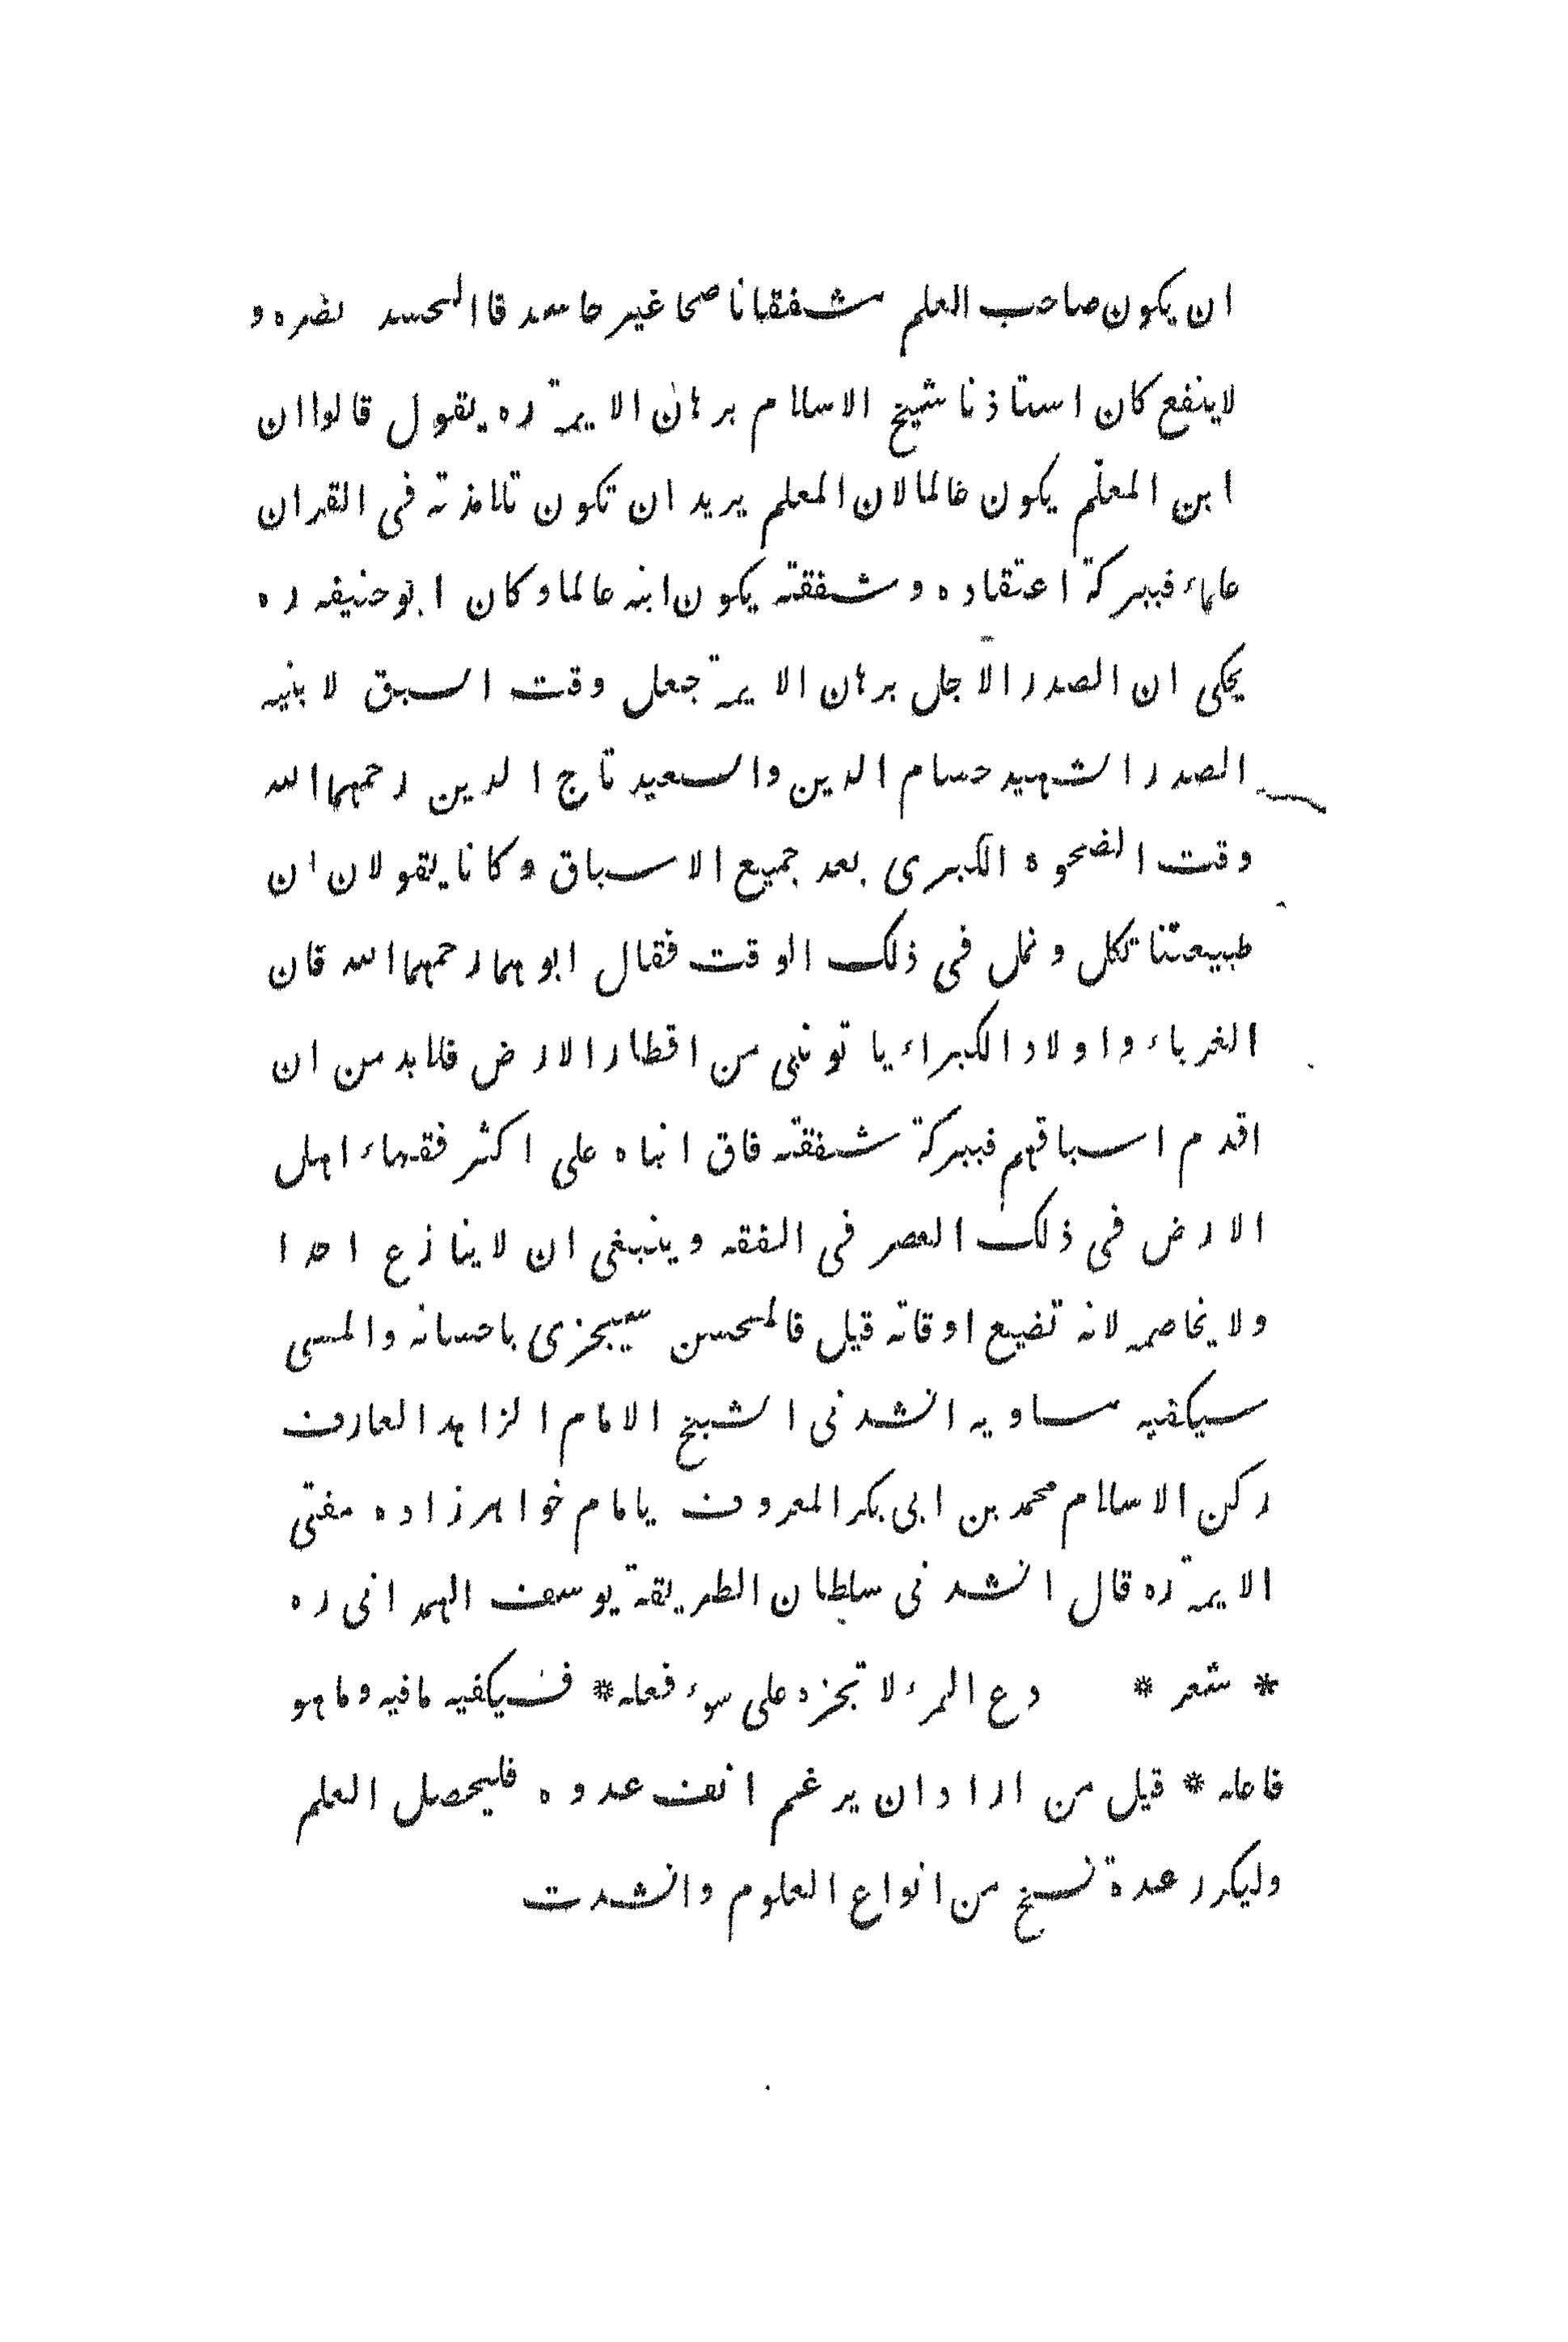 ان يكون صاحب العلم مشفقا ناصحا غير حاسد فاالحسد يضره و
لاينفع كان استاذنا شيخ الاسلام برهان الايمة ره يقول قالواان
ابن المعلّم يكون عالما لان المعلم يريد ان تكون تلامذته فى القران
علماء فببركة اعتقاده و شفقته يكون ابنه عالما وكان ابوحنيفه ره
يحكى ان الصدر الاجل برهان الايمة جعل وقت السبق لابنيه
الصدر الشهيد حسام الدين والسعيد تاج الدين رحمهما الله
وقت الضحوه الكبرى بعد جميع الاسباق وكانا يقولان ان
طبيعتنا تكل ونمل فى ذلك الوقت فقال ابوهما رحمهما الله فان
الغرباء واولاد الكبراء ياتوننى من اقطار الارض فلابد من ان
اقدم اسباقهم فببركة شفقته فاق ابناه على اكثر فقهاء اهل
الارض فى ذلك العصر فى الفقه وينبغى ان لاينازع احدا
ولا يخاصمه لانه تضيع اوقاته قيل فالمحسن سيجزى باحسانه والمسى
سيكفيه مساويه انشدنى الشيخ الامام الزاهد العارف
ركن الاسلام محمد بن ابى بكر المعروف يامام خواهرزاده مفتى
الايمة ره قال انشدنى سلطان الطريقة يوسف الهمدانى ره
* شعر * دع المرء لا تجزه على سوء فعله * فسيكفيه مافيه وماهو
فاعله * قيل من اراد ان يرغم انف عدوه فليحصل العلم
وليكرر عدة نسخ من انواع العلوم وانشدت